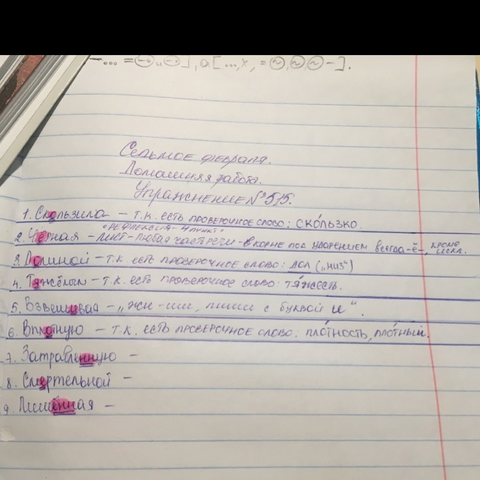 Седьмое февраля.
Домашняя работа.
Упражнение № 515.
1. Скользила – т.к. есть проверочное слово: скóльзко.
2. Чёрная – лист – любая часть речи – в корне под ударением всегда -ё-, кроме искл.
3. Долиной – т.к. есть проверочное слово: дол („низ“)
4. Тяжёлом – т.к. есть проверочное слово: тя́жесть.
5. Взвешивая – „жи-ши, пиши с буквой и“.
6. Вплотную – т.к. есть проверочное слово: плóтность, плóтный.
7. Затравленную –
8. Смертельной –
9. Лишённая –